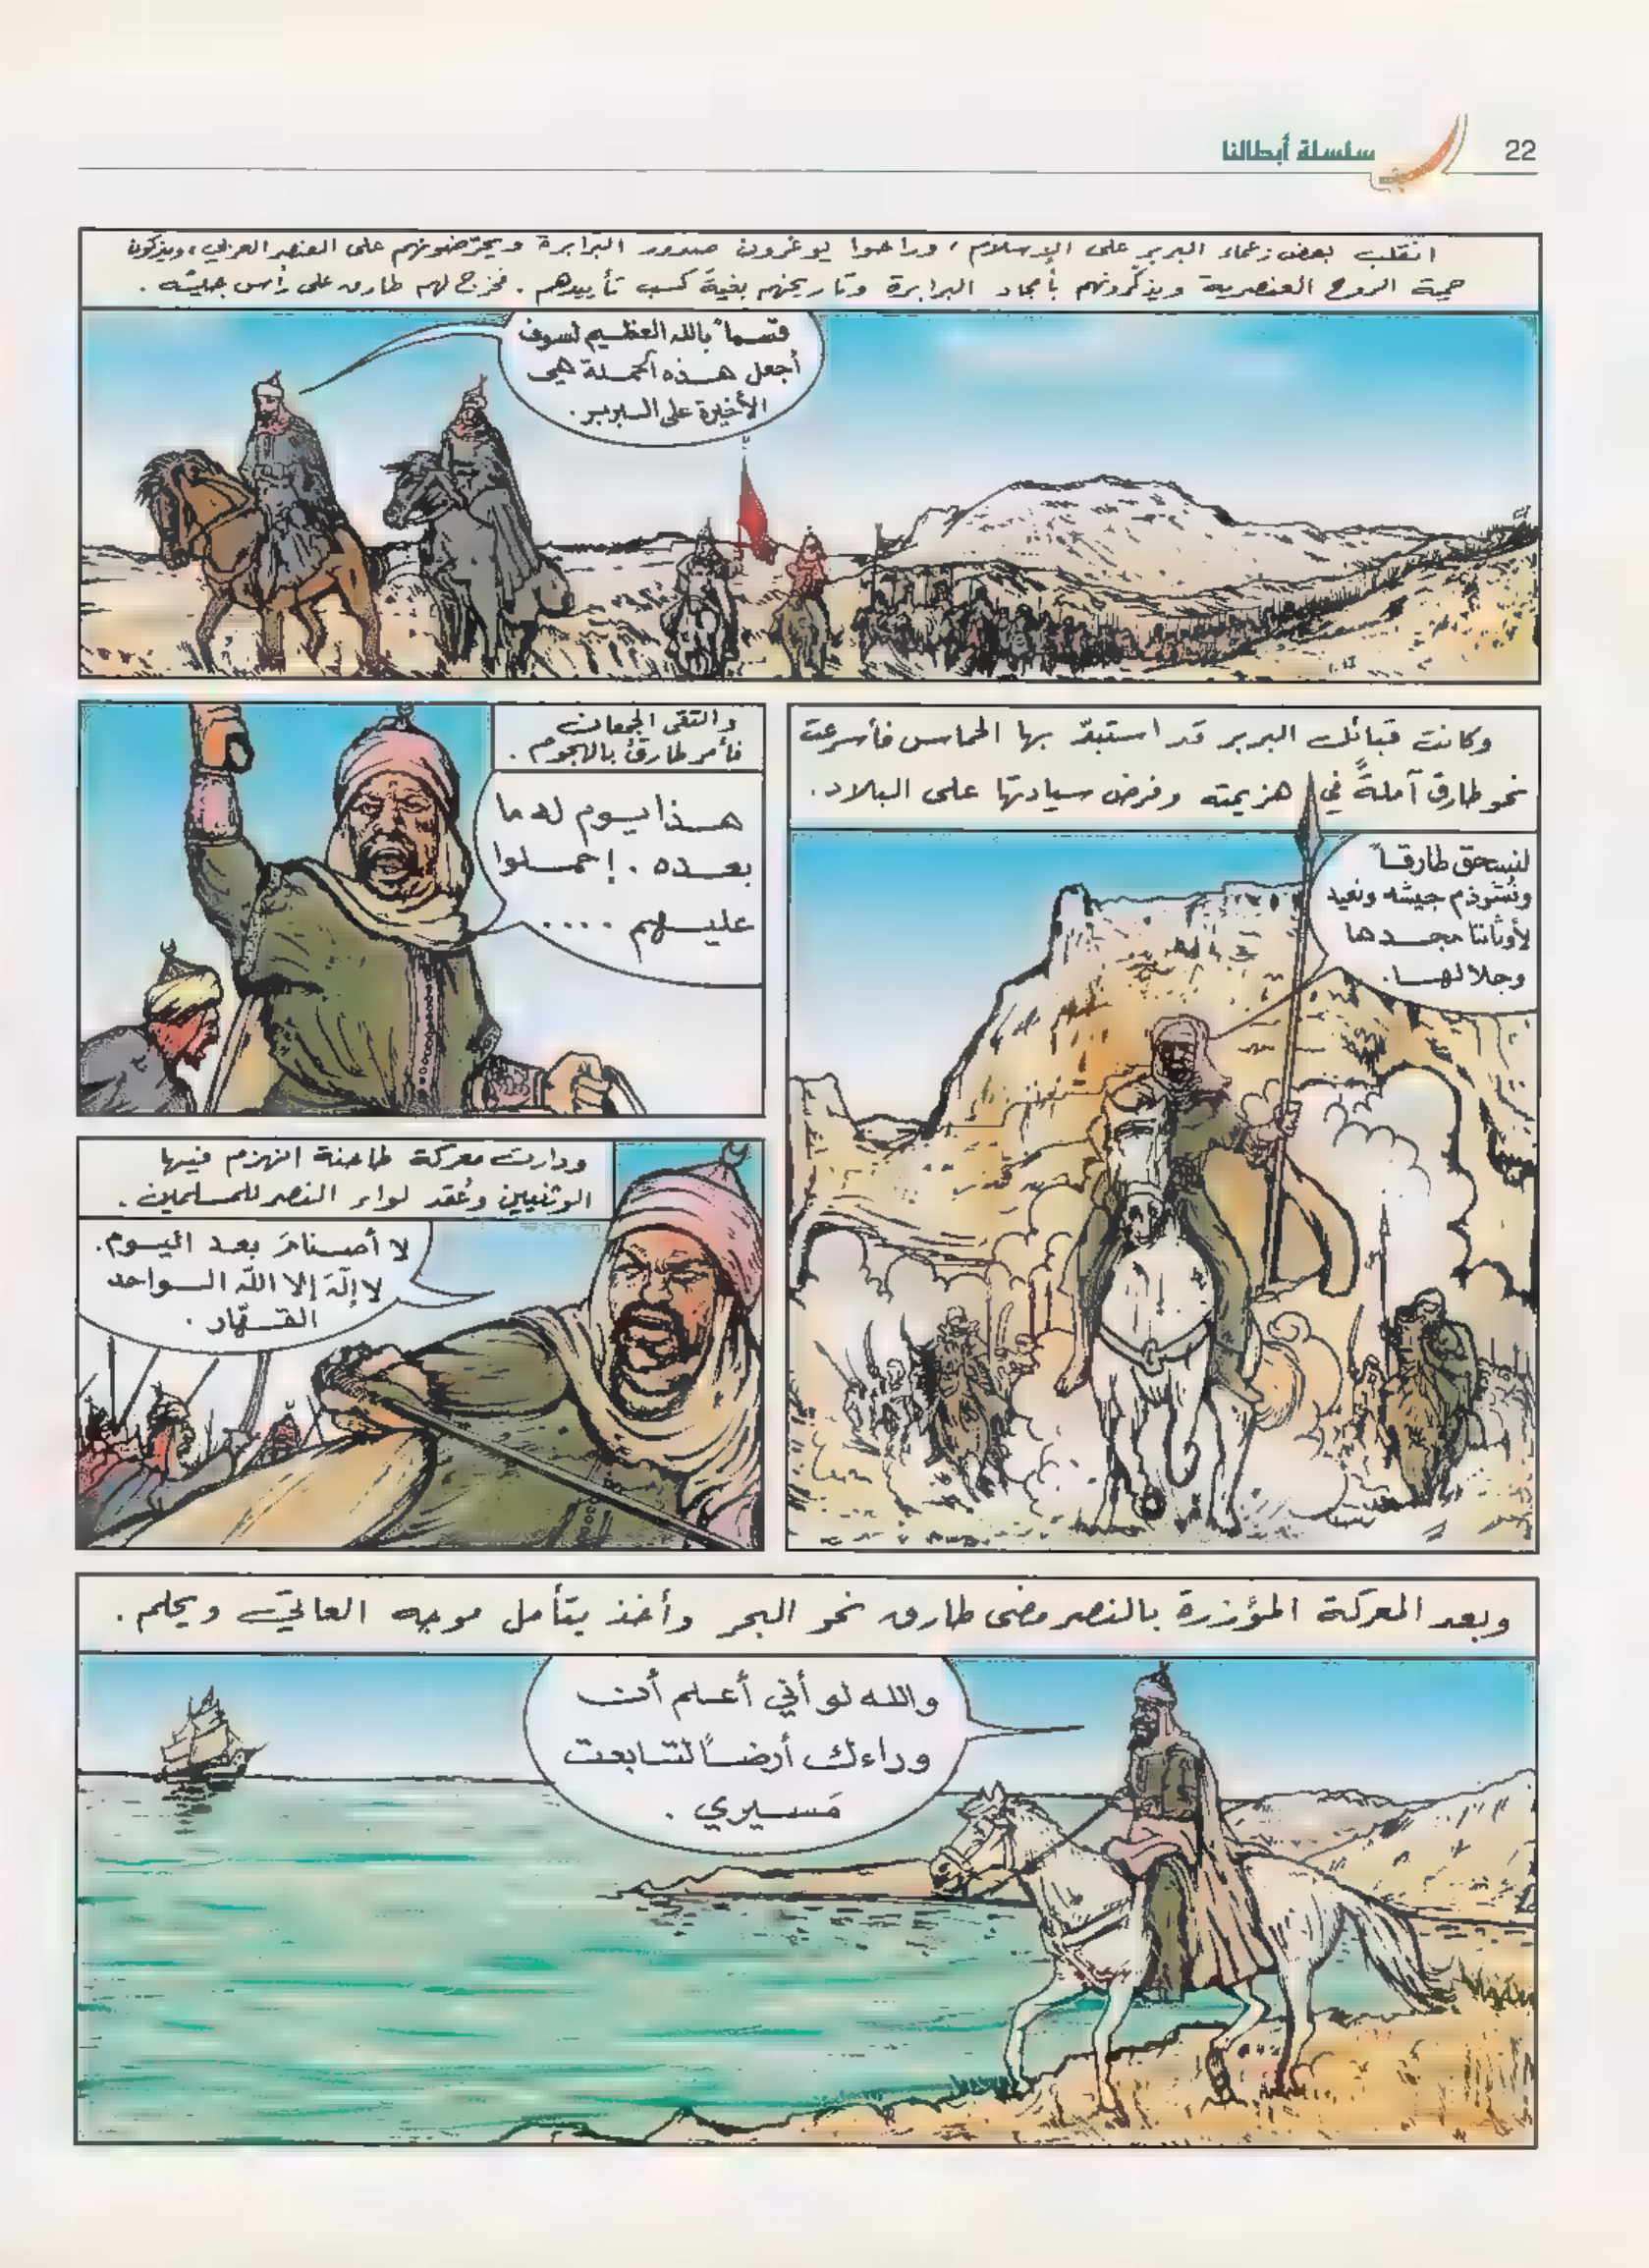 22
سلسلة أبطالنا
انقلب بعض زعماء البربر على الإسلام، وراحوا يوغرون صدور البرابرة ويحرّضونهم على العنصر العربي، ويذكون
حمية الروح العنصرية ويذكّرونهم بأمجاد البرابرة وتاريخهم بغية كسب تأييدهم. فخرج لهم طارق على رأس جيشه.
قسماً بالله العظيم لسوف
أجعل هذه الحملة هي
الأخيرة على البربر.
وكانت قبائل البربر قد استبدّ بها الحماس فأسرعت
نحو طارق آملةً في هزيمته وفرض سيادتها على البلاد.
لنسحق طارقاً
جيشه ونعيد
لأوثاننا مجدها
وجلالها.
والتقى الجمعان
فأمر طارق بالهجوم.
هذا يوم له ما
بعده. إحملوا
عليهم ....
ودارت معركة طاحنة انهزم فيها
الوثنيين وعُقد لواء النصر للمسلمين.
لا أصنامَ بعد اليوم.
لا إلَهَ إلا اللّه الواحد
القهّار.
وبعد المعركة المؤزرة بالنصر مضى طارق نحو البحر وأخذ يتأمل موجه العاتي ويحلم.
والله لو أني أعلم أن
وراءك أرضاً لتابعت
مَسيري.